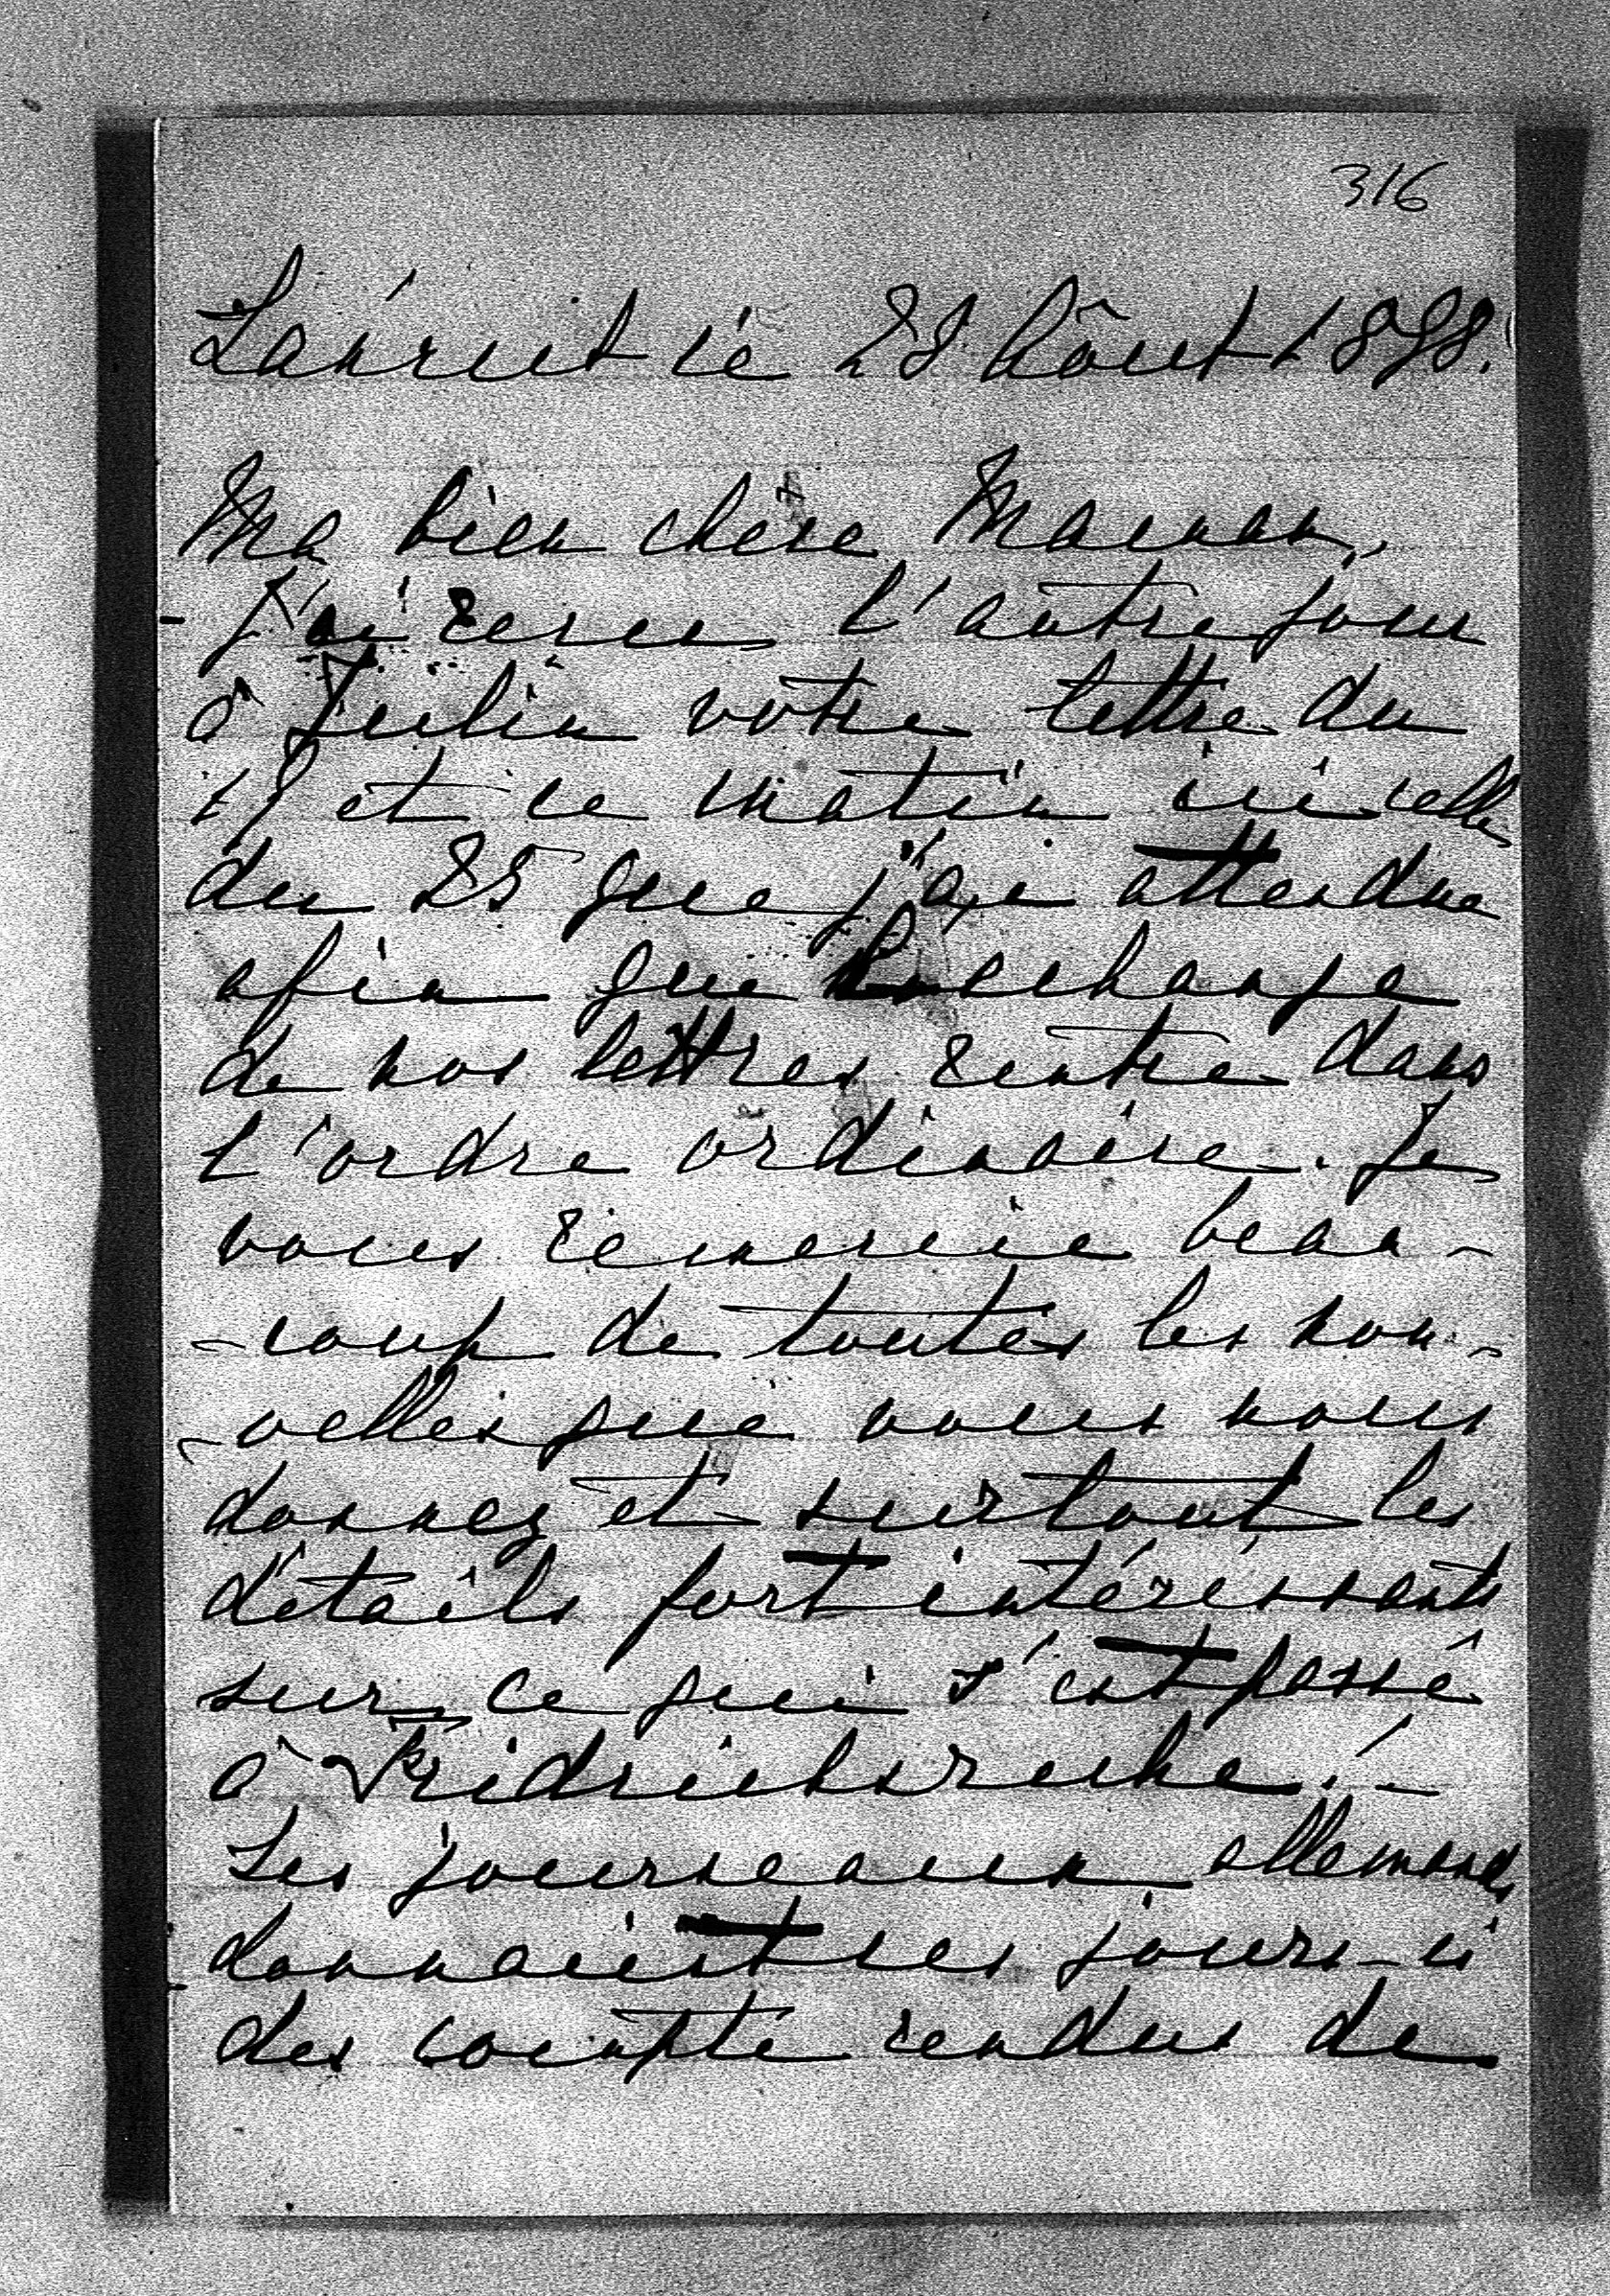 316
le 28 Août 1898.
Ma bien chère Maman,
J'ai recu l'autre jour
à votre lettre du
et ce matin ici celle
du 25 que j'ai attendue
afin que l'echange
de nos lettres rentre dans
l'ordre ordinaire. Je
vous remercie beau-
-coup de toutes les nou-
-velles que vous nous
donnez et surtout les
détails fort intéréssants
sur ce qui s'est passé
à Fridrichsruhe. –
Les journeaux allemands
donnaient ces jours-ci
des compte rendus de